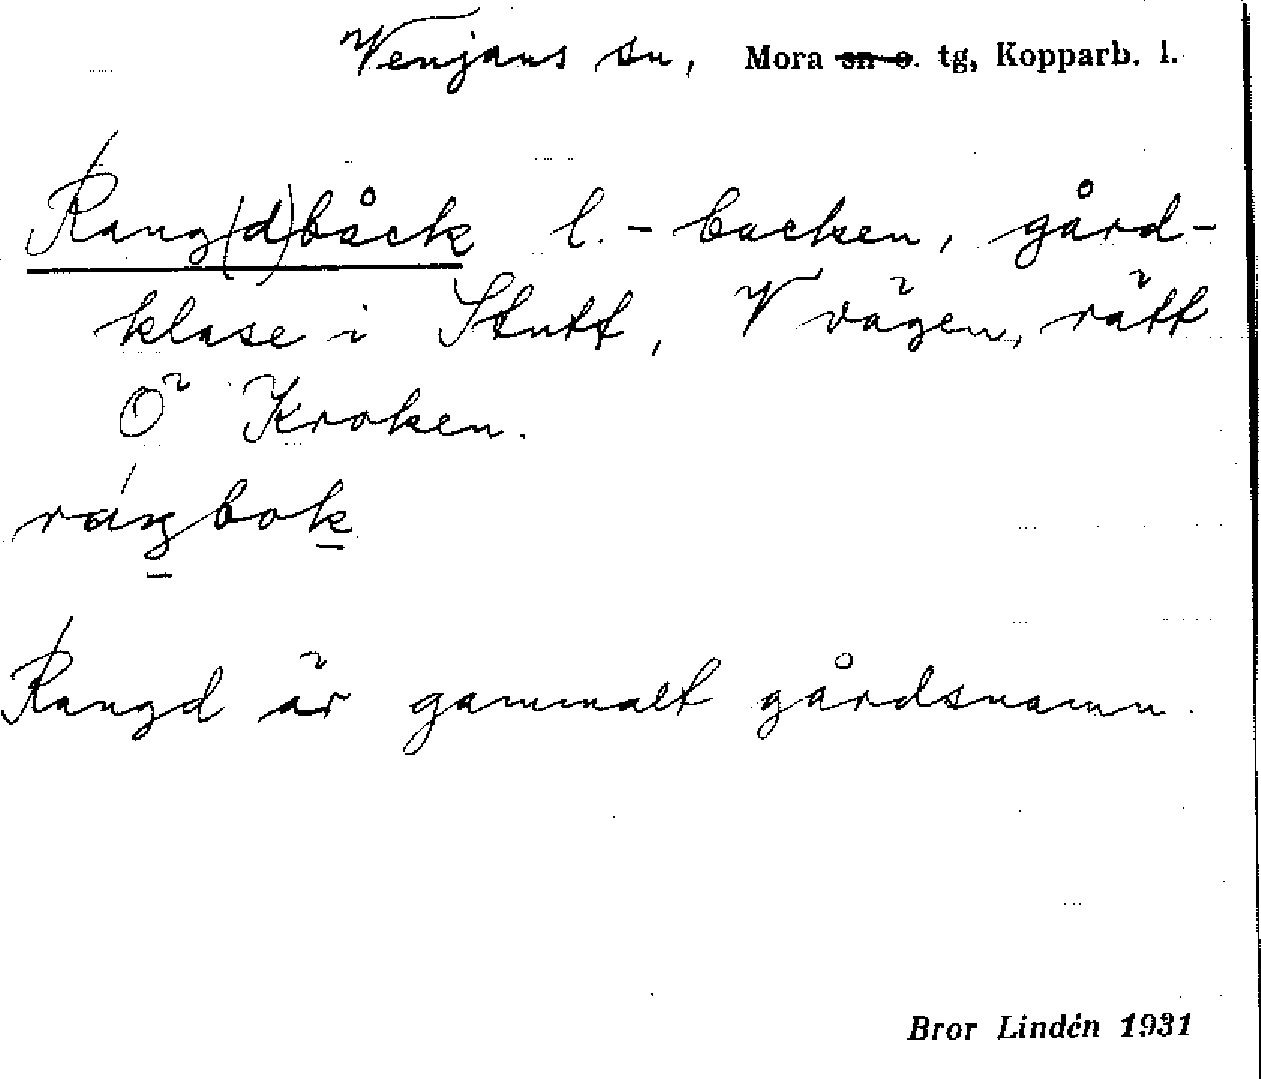 Venjans sn, Mora sn o. tg, Kopparb. l.
Rang(d)båck l. -backen, gård-
klase i Stutt, V vägen, rätt
Ö Kroken.
ráŋbok
Rangd är gammalt gårdsnamn.
Bror Lindén 1931